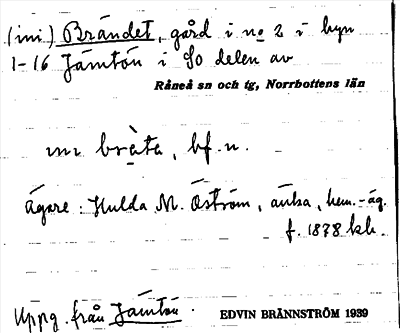 (ini.) Brändet, gård i no 2 i byn
1-16 Jämtön i SO delen av
Råneå sn och tg, Norrbottens län
bràta, bf. n.
Ägare: Hulda M. Öström, änka, hem.-äg.
f. 1878 kh.
Uppg. från Jämtön.
EDVIN BRÄNNSTRÖM 1939